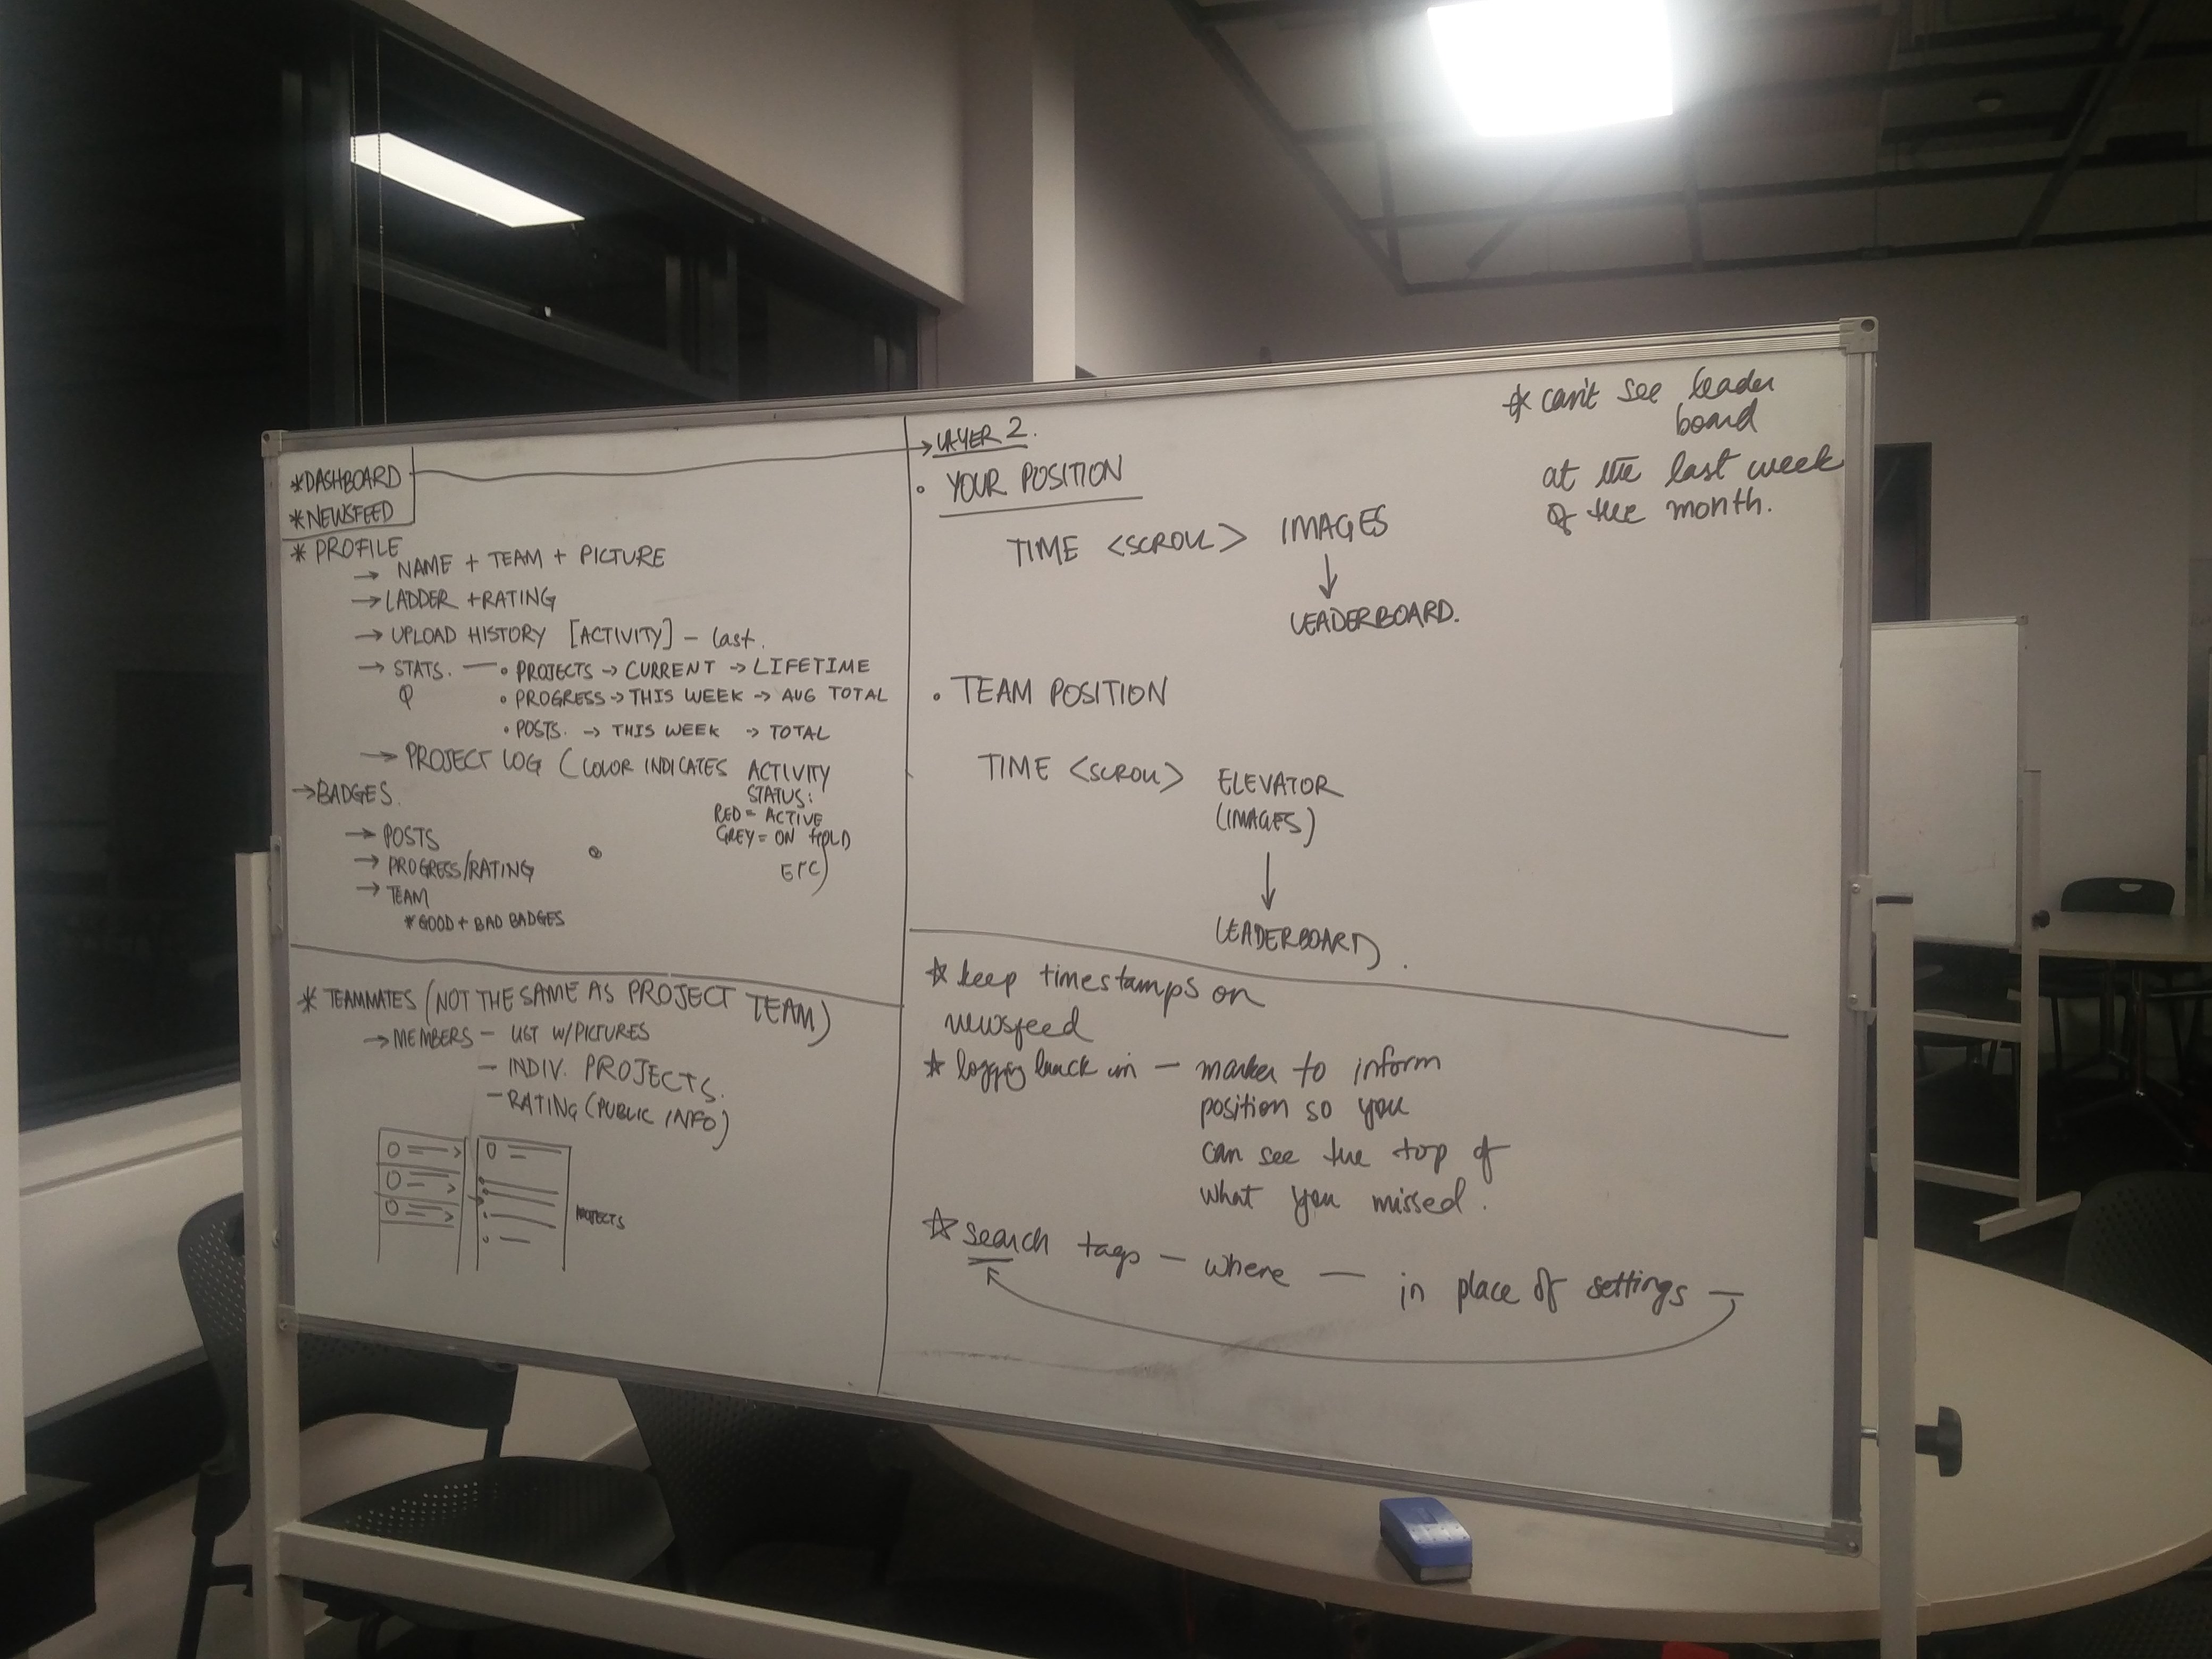 *DASHBOARD
*NEWSFEED
* PROFILE
→ NAME + TEAM + PICTURE
→ LADDER + RATING
→ UPLOAD HISTORY [ACTIVITY] - last.
→ STATS. — • PROJECTS → CURRENT → LIFETIME
• PROGRESS → THIS WEEK → AUG TOTAL
• POSTS. → THIS WEEK → TOTAL
→ PROJECT LOG (COLOR INDICATES ACTIVITY
STATUS:
RED = ACTIVE
GREY = ON HOLD
ETC)
→ BADGES.
→ POSTS
→ PROGRESS/RATING
→ TEAM
* GOOD + BAD BADGES
* TEAMMATES (NOT THE SAME AS PROJECT TEAM)
→ MEMBERS - LIST W/PICTURES
- INDIV. PROJECTS.
- RATING (PUBLIC INFO)
PROJECTS
→ LAYER 2.
• YOUR POSITION
TIME <SCROLL> IMAGES
↓
LEADERBOARD.
* can't see leader
board
at the last week
of the month.
• TEAM POSITION
TIME <SCROLL> ELEVATOR
(IMAGES)
↓
LEADERBOARD.
* keep timestamps on
newsfeed
* logging back in - marker to inform
position so you
can see the top of
what you missed.
* search tags - where — in place of settings —